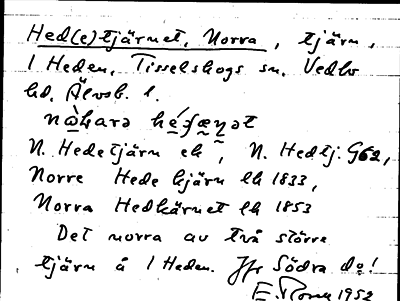 Hed(e)tjärnet, Norra, tjärn,
1 Heden, Tisselskogs sn, Vedbo
hd, Älvsb. l.
N. Hedetjärn ek, N. Hedtj. G62,
Norre Hede kjärn lh 1833,
Norra Hedkärnet lh 1853
Det norra av två större
tjärn å 1 Heden. Jfr Södra do!
1952